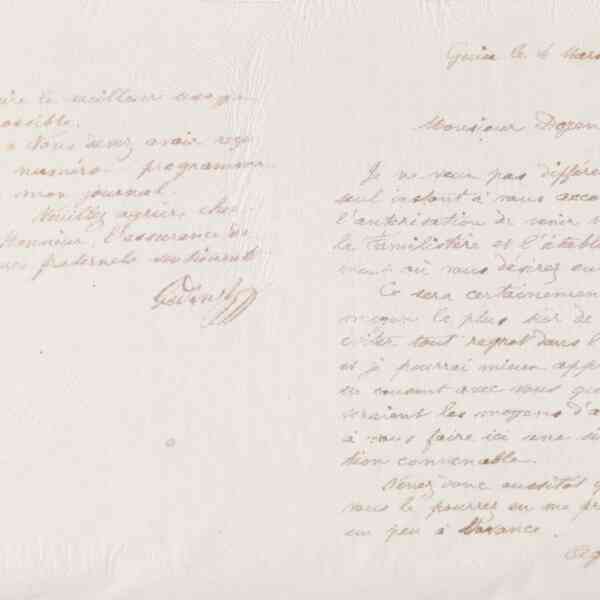 Guise le 4 Mars
Monsieur
Je ne veux pas différer
seul instant à vous acco
l'autorisation de venir v
le Familistère et l'établ
où vous désirez
Ce sera certainement
moyen le plus sûr de
éviter tout regret dans l'
et je pourrai mieux app
en causant avec vous que
seraient les moyens d'a
à vous faire ici une si
tion convenable.
Venez donc aussitôt q
vous le pourrez en me pr
un peu à l'avance.
Ag
ire le meilleur usage
possible.
Vous devez avoir reçu
numéro programme
mon journal.
Veuillez agréer, cher
Monsieur, l'assurance de
mes fraternels sentiments
Godin